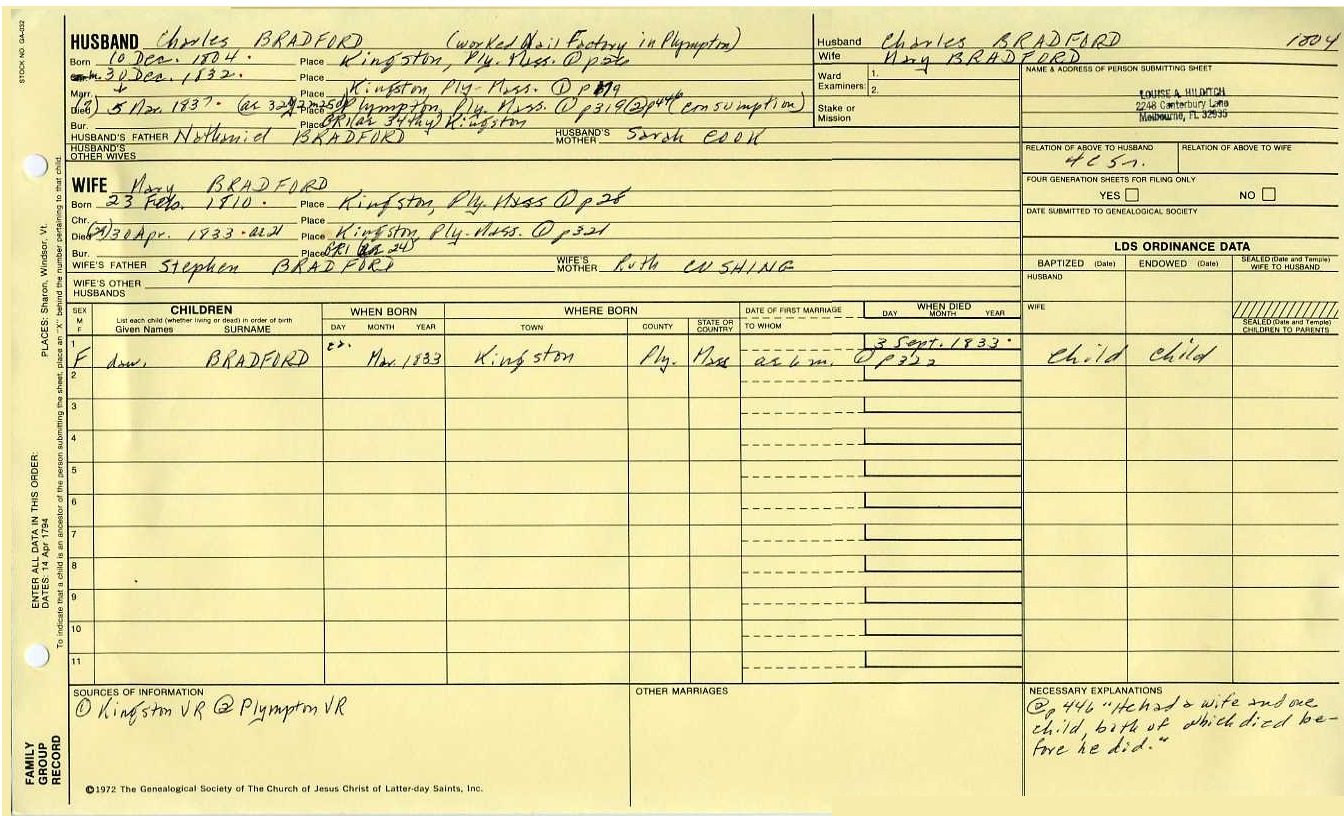 STOCK NO. GA-032
HUSBAND Charles BRADFORD (worked Nail Factory in Plympton)
Born 10 Dec. 1804. Place Kingston, Ply. Mass. ① p26
m. 30 Dec. 1832. Place
Marr. Place Kingston, Ply-Mass. ① p
Died (2) 5 Mar. 1837. Plympton, Ply. Mass. ① p319 ② p446 (consumption)
Bur. Place GR1 (ae 34thy) Kingston
HUSBAND'S FATHER Nathaniel BRADFORD HUSBAND'S MOTHER Sarah COOK
HUSBAND'S OTHER WIVES
WIFE Mary BRADFORD
Born 23 Feb. 1810. Place Kingston, Ply. Mass ① p28
Chr. Place
Died 30 Apr. 1833. Place Kingston, Ply-Mass. ① p321
Bur. Place GR1 (ae 24)
WIFE'S FATHER Stephen BRADFORD WIFE'S MOTHER Ruth CUSHING
WIFE'S OTHER HUSBANDS
Husband Charles BRADFORD 1804
Wife Mary BRADFORD
Ward Examiners: 1.
2.
Stake or Mission
NAME & ADDRESS OF PERSON SUBMITTING SHEET
LOUISE A. HILDITCH
2248 Canterbury Lane
Melbourne, FL 32935
RELATION OF ABOVE TO HUSBAND RELATION OF ABOVE TO WIFE
4C5r.
FOUR GENERATION SHEETS FOR FILING ONLY
YES NO
DATE SUBMITTED TO GENEALOGICAL SOCIETY
LDS ORDINANCE DATA
BAPTIZED (Date) ENDOWED (Date) SEALED (Date and Temple) WIFE TO HUSBAND
HUSBAND
WIFE
SEALED (Date and Temple) CHILDREN TO PARENTS
SEX M F
CHILDREN
List each child (whether living or dead) in order of birth
Given Names SURNAME
WHEN BORN
DAY MONTH YEAR
WHERE BORN
TOWN COUNTY STATE OR COUNTRY
DATE OF FIRST MARRIAGE
TO WHOM
WHEN DIED
DAY MONTH YEAR
1 F dau. BRADFORD ca. Mar. 1833 Kingston Ply. Mass ae 6 m. ① p322 3 Sept. 1833. child child
2
3
4
5
6
7
8
9
10
11
SOURCES OF INFORMATION
① Kingston VR ② Plympton VR
OTHER MARRIAGES
NECESSARY EXPLANATIONS
② p 446 "He had a wife and one
child, both of which died be-
fore he did."
©1972 The Genealogical Society of The Church of Jesus Christ of Latter-day Saints, Inc.
FAMILY GROUP RECORD
ENTER ALL DATA IN THIS ORDER:
DATES: 14 Apr 1794
PLACES: Sharon, Windsor, Vt.
To indicate that a child is an ancestor of the person submitting the sheet, place an "X" behind the number pertaining to that child.